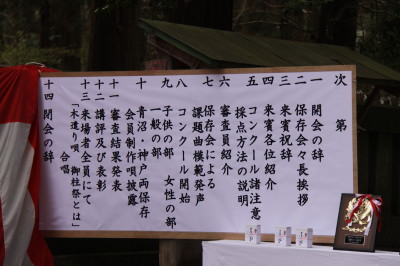 次第
一 開会の辞
二 保存会々長挨拶
三 来賓祝辞
四 来賓各位紹介
五 コンクール諸注意
採点方法の説明
六 審査員紹介
七 保存会による
課題曲模範発声
八 コンクール開始
九 子供の部 女性の部
一般の部
十 青沼・神戸両保存
会員制作唄披露
十一 審査結果発表
十二 講評及び表彰
十三 来場者全員にて
「木遣り唄 御柱祭とは」
合唱
十四 閉会の辞